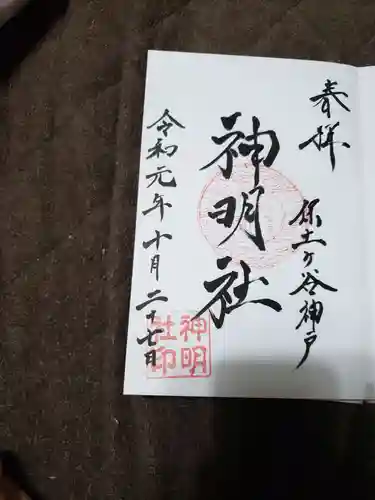 奉拝
保土ヶ谷神戸
神明社
令和元年十月二十七日
神明
社印